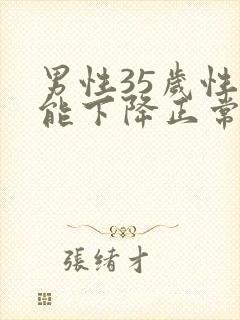 男性35歲性
能下降正常
張緒才